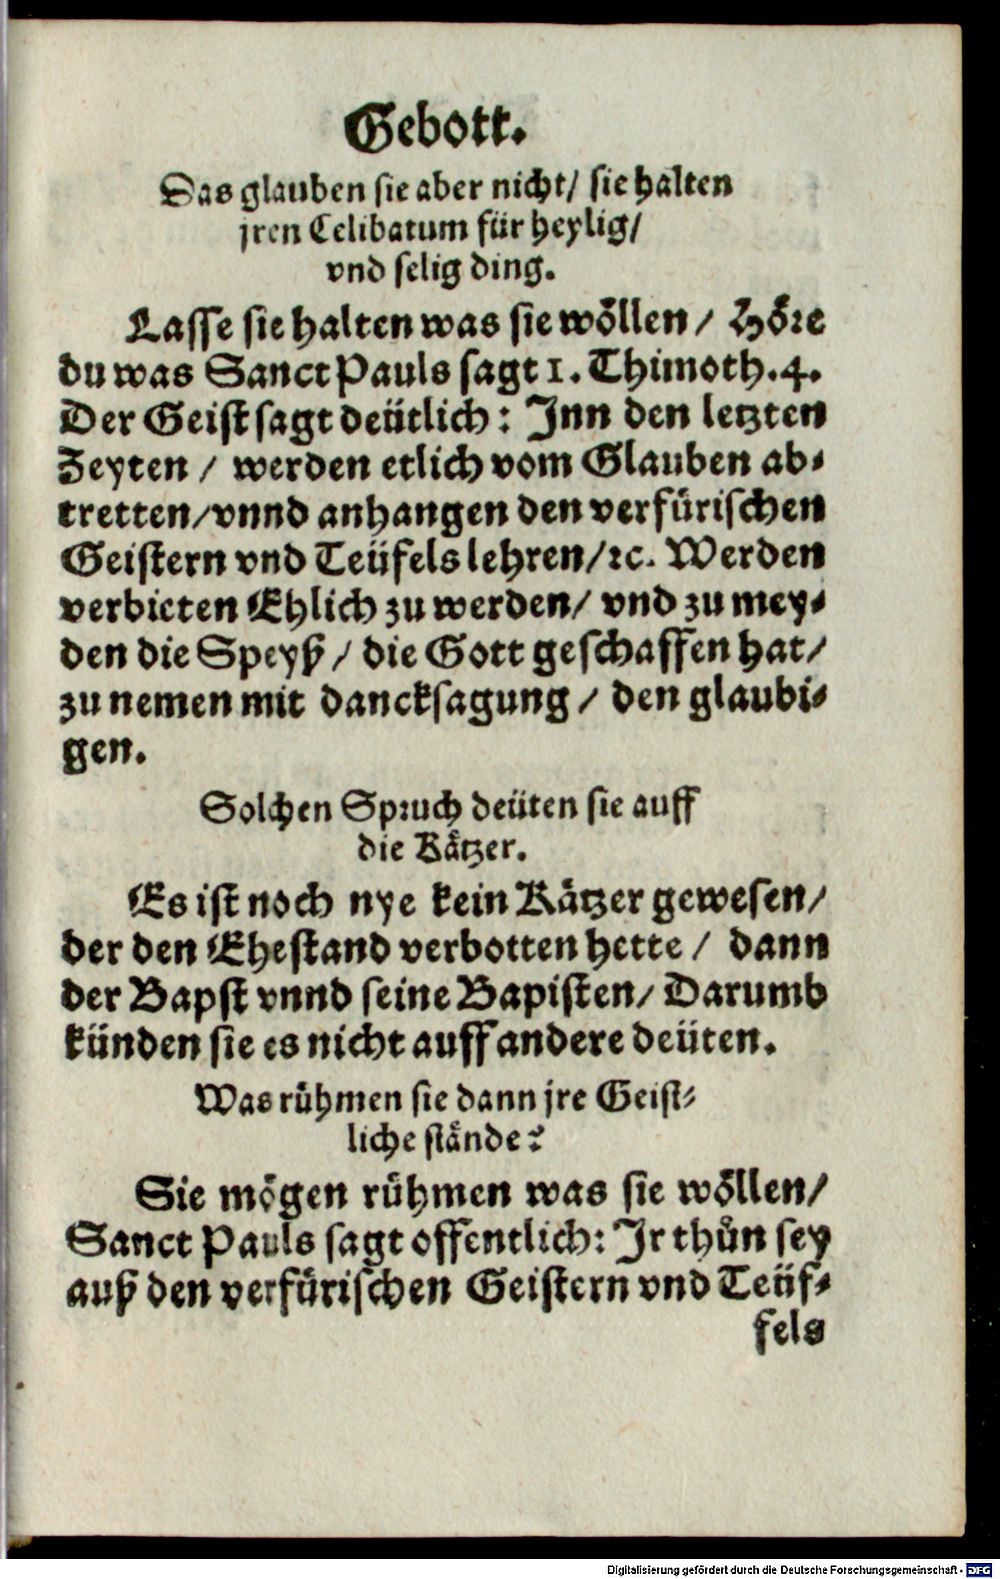 Gebott.
Das glauben sie aber nicht/ sie halten
jren Celibatum für heylig/
vnd selig ding.
Lasse sie halten was sie wöllen / Höre
du was Sanct Pauls sagt 1. Thimoth. 4.
Der Geist sagt deütlich: Jnn den letzten
Zeyten / werden etlich vom Glauben ab-
tretten/vnnd anhangen den verfürischen
Geistern vnd Teüfels lehren/ꝛc. Werden
verbieten Ehlich zu werden/ vnd zu mey-
den die Speyß / die Gott geschaffen hat/
zu nemen mit dancksagung / den glaubi-
gen.
Solchen Spruch deüten sie auff
die Kätzer.
Es ist noch nye kein Kätzer gewesen/
der den Ehestand verbotten hette / dann
der Bapst vnnd seine Bapisten/ Darumb
künden sie es nicht auff andere deüten.
Was rühmen sie dann jre Geist-
liche stände?
Sie mögen rühmen was sie wöllen/
Sanct Pauls sagt offentlich: Jr thůn sey
auß den verfürischen Geistern vnd Teüf-
fels
Digitalisierung gefördert durch die Deutsche Forschungsgemeinschaft - DFG